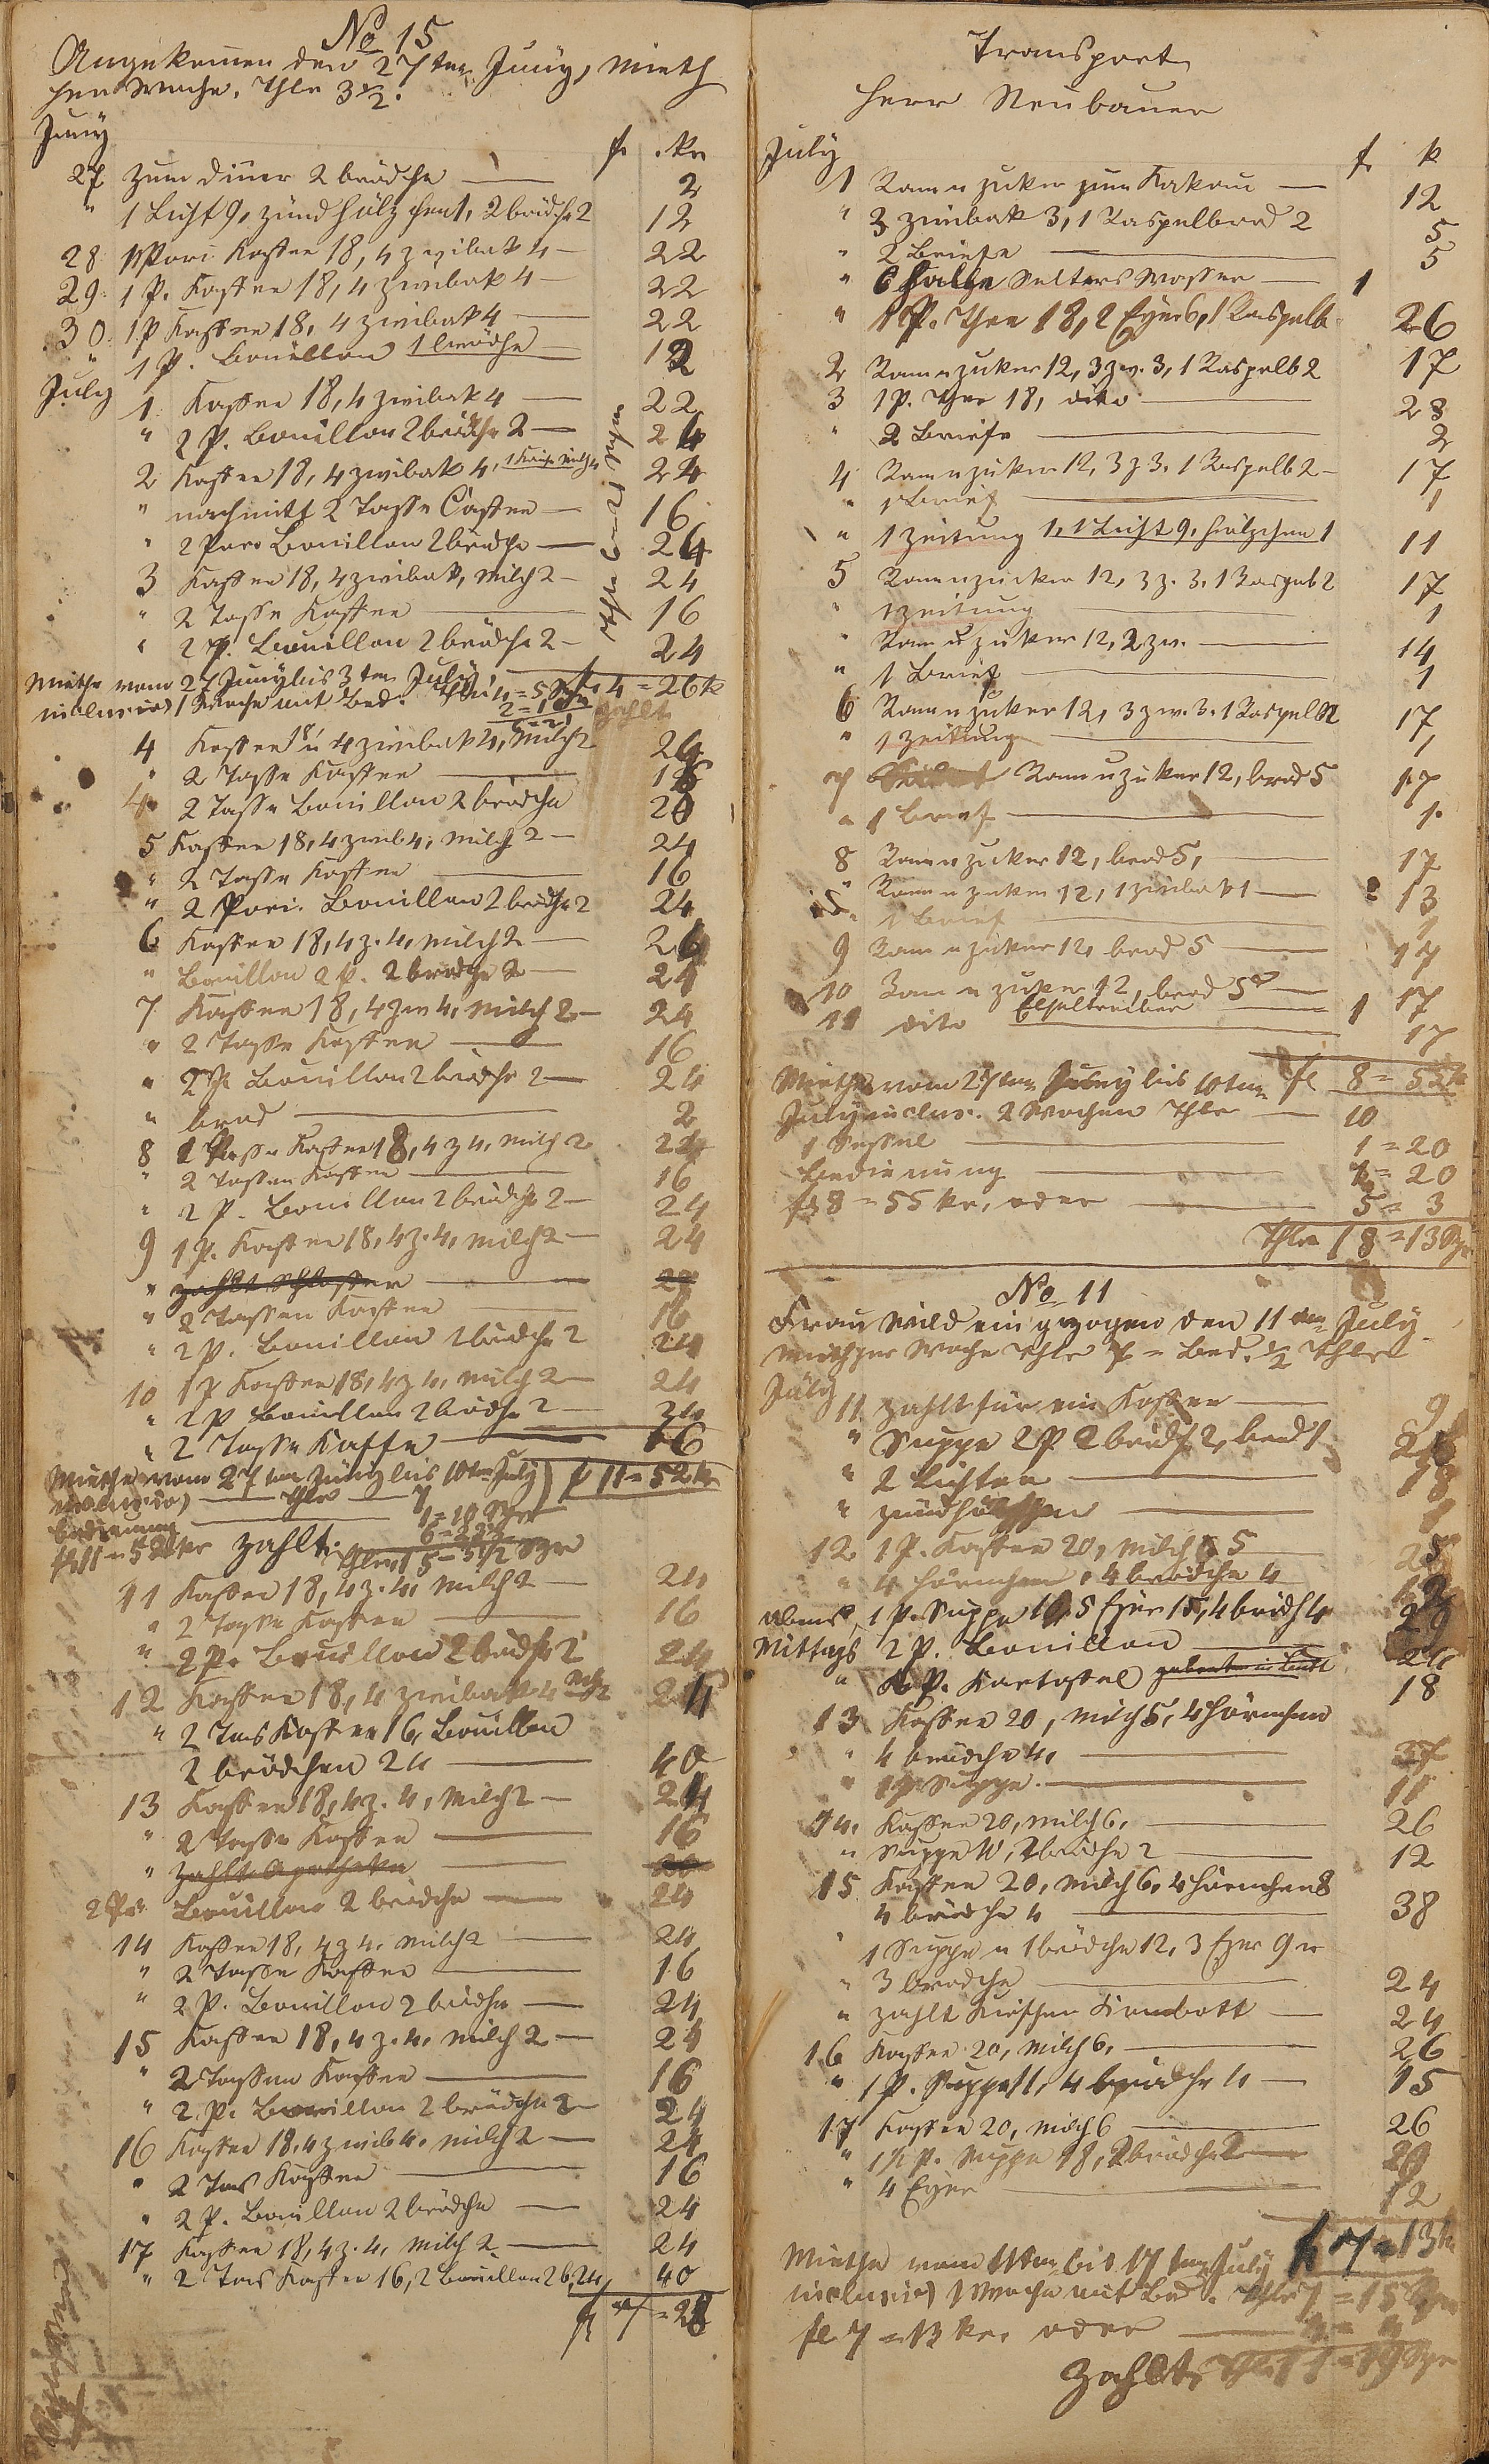 No 15
Angekomen den 27ten Juny, Mieth
per Woche. Thlr 3 1/2.
Juny
f. kr
27 Zum diner 2 brödche — 2
" 1 Licht 9, Zündhölzchen 1, 2 brödche 2 12
28 1 Pori Kaffee 18, 4 zwibak 4 — 22
29 1 P. Kaffee 18, 4 zwibak 4 — 22
30 1 P Kaffee 18, 4 zwibak 4 — 22
" 1 P. Bouillon 1 brödche — 12
July 1 Kaffee 18, 4 zwibak 4 — 22
" 2 P. Bouillon 2 brödche 2 — 24
2 Kaffee 18, 4 zwibak 4, 24
" nachmitt 2 Tasse Caffee — 16
" 2 Pors Bouillon 2 brödche — 24
3 Kaffee 18, 4 zwibak, Milch 2 — 24
" 2 Tasse Kaffee — 16
" 2 P. Bouillon 2 brödche 2 — 24
Miethe vom 27 Juny bis 3ten July f 4 = 26 k
inclusive 1 Woche mit Bed.
zahlt
4 Kaffee 18 u 4 zwibak 4, Milch 2 24
" 2 Tasse Kaffee — 16
4 2 Tasse Bouillon 2 brödche 20
5 Kaffee 18, 4 zwib 4, Milch 2 — 24
" 2 Tasse Kaffee — 16
" 2 Pori. Bouillon 2 brödche 2 24
6 Kaffee 18, 4 z. 4, Milch 2 — 24
" Bouillon 2 P. 2 brödche 2 — 24
7 Kaffee 18, 4 zw 4, Milch 2 — 24
" 2 Tasse Kaffee — 16
" 2 P. Bouillon 2 brödche 2 — 24
" brod — 2
8 Kaffee 18, 4 z 4, Milch 2 24
" 2 Tassen Kaffee — 16
" 2 P. Bouillon 2 brödche 2 — 24
9 1 P. Kaffee 18, 4 z. 4, Milch 2 — 24
" zahlt Schlosser —
" 2 Tassen Kaffee — 16
" 2 P. Bouillon 2 brödche 2 24
10 1 P Kaffee 18, 4 z 4, Milch 2 — 24
" 2 P Bouillon 2 brödche 2 — 24
" 2 Tasse Kaffe — 16
Miethe vom 27ten Juny bis 10ten July f 11 = 52 kr
inclusive — Thlr — 7
bedienung — 1 = 10 Sgr
f 11 = 52 kr zahlt. Thlr 15 = 5 1/2 Sgr
11 Kaffee 18, 4 z. 4, Milch 2 — 24
" 2 Tasse Kaffee — 16
" 2 P. Bouillon 2 brödche 2 24
12 Kaffee 18, 4 zwibak 4 Milch 2 24
" 2 Tass Kaffee 16, Bouillon
2 brödchen 24 — 40
13 Kaffee 18, 4 z. 4, Milch 2 — 24
" 2 Tasse Kaffee — 16
" zahlt Apotheke —
2 P. Bouillon 2 brödche — 24
14 Kaffee 18, 4 z 4, Milch 2 — 24
" 2 Tasse Kaffee — 16
" 2 P. Bouillon 2 brödche — 24
15 Kaffee 18, 4 z. 4, Milch 2 — 24
" 2 Tassen Kaffee — 16
" 2 P. Bouillon 2 brödche 2 — 24
16 Kaffee 18, 4 zwib 4, Milch 2 — 24
" 2 Tass Kaffee — 16
" 2 P. Bouillon 2 brödche — 24
17 Kaffee 18, 4 z. 4, Milch 2 — 24
" 2 Tass Kaffee 16, 2 Bouillon 2 b. 24 40
f 7 = 28
Transport
Herr Neubauer
July f k
1 Ram u Zuker zum Kakau — 12
" 3 zwibak 3, 1 Raspelbrod 2 5
" 2 Briefe — 5
" 6 halbe Selters Wasser — 1
" 1 P. Thee 18, 2 Eyer 6, 1 Raspelb. 26
2 Ram u Zuker 12, 3 zw. 3, 1 Raspelb 2 17
3 1 P. Thee 18, dito — 28
" 2 Briefe — 2
4 Ram u Zuker 12, 3 z 3. 1 Raspelb 2 — 17
" 1 Brief — 1
" 1 Zeitung 1, 1 Licht 9, hölzchen 1 11
5 Ram u Zucker 12, 3 z. 3. 1 Raspelb 2 17
" 1 Zeitung — 1
" Ram u Zuker 12, 2 zw. — 14
" 1 Brief — 1
6 Ram u Zuker 12, 3 zw. 3. 1 Raspelb 2 17
" 1 Zeitung — 1
7 Ram u Zuker 12, brod 5 17
" 1 Brief — 1
8 Ram u Zuker 12, brod 5, — 17
" Ram u Zuker 12, 1 zwibak 1 — 13
" 1 Brief — 1
9 Ram u Zuker 12, brod 5 — 17
10 Ram u Zuker 12, brod 5 — 17
11 dito Eseltreiber — 1 17
Miethe vom 27ten Juny bis 10ten fl 8 = 52 k
July inclus. 2 Wochen Thlr — 10
1 Sessel — 1 = 20
Bedienung — 1 = 20
f 8 = 55 kr, oder — 5 = 3
Thlr 18 = 13 Sgr
No 11
Frau Wild eingezogen den 11ten July
Mieth per Woche Thlr 7 = Bed. 1/2 Thlr
July
11 zahlt für ein Kaffee — 9
" Suppe 2 P. 2 brödch 2, brod 1
" 2 Lichter — 18
" zündhölzchen — 1
12 1 P. Kaffee 20, Milch 5 25
" 4 hörnchen, 4 brödche 4 12
abens, 1 P. Suppe 10, 5 Eyer 15, 4 brödch 4 29
Mittags 2 P. Bouillon — 24
" P. Kartoffel 18
13 Kaffee 20, Milch 5, 4 hörnchen
" 4 brödche 4, — 37
" 1 P Suppe. — 11
14 Kaffee 20, Milch 6, — 26
" Suppe 10, 2 brödche 2 — 12
15 Kaffee 20, Milch 6, 4 hörnchen 8
4 brödche 4 — 38
" 1 Suppe u 1 brödche 12, 3 Eyer 9 u
" 3 brodche — 24
" zahlt Kirschen Kombott — 24
16 Kaffee 20, Milch 6, — 26
" 1 P. Suppe 11, 4 brödche 4 — 15
17 Kaffee 20, Milch 6 — 26
" 1 1/2 P. Suppe 18, 2 brödche 2 — 20
" 4 Eyer — 12
Miethe vom 11ten bis 17ten July f 7 = 13 k
inclusive 1 Woche mit Bed. Thlr 7 = 15 Sgr
fl. 7 = 13 kr. oder — 4 = 4
zahlt Thlr 11 = 19 Sgr